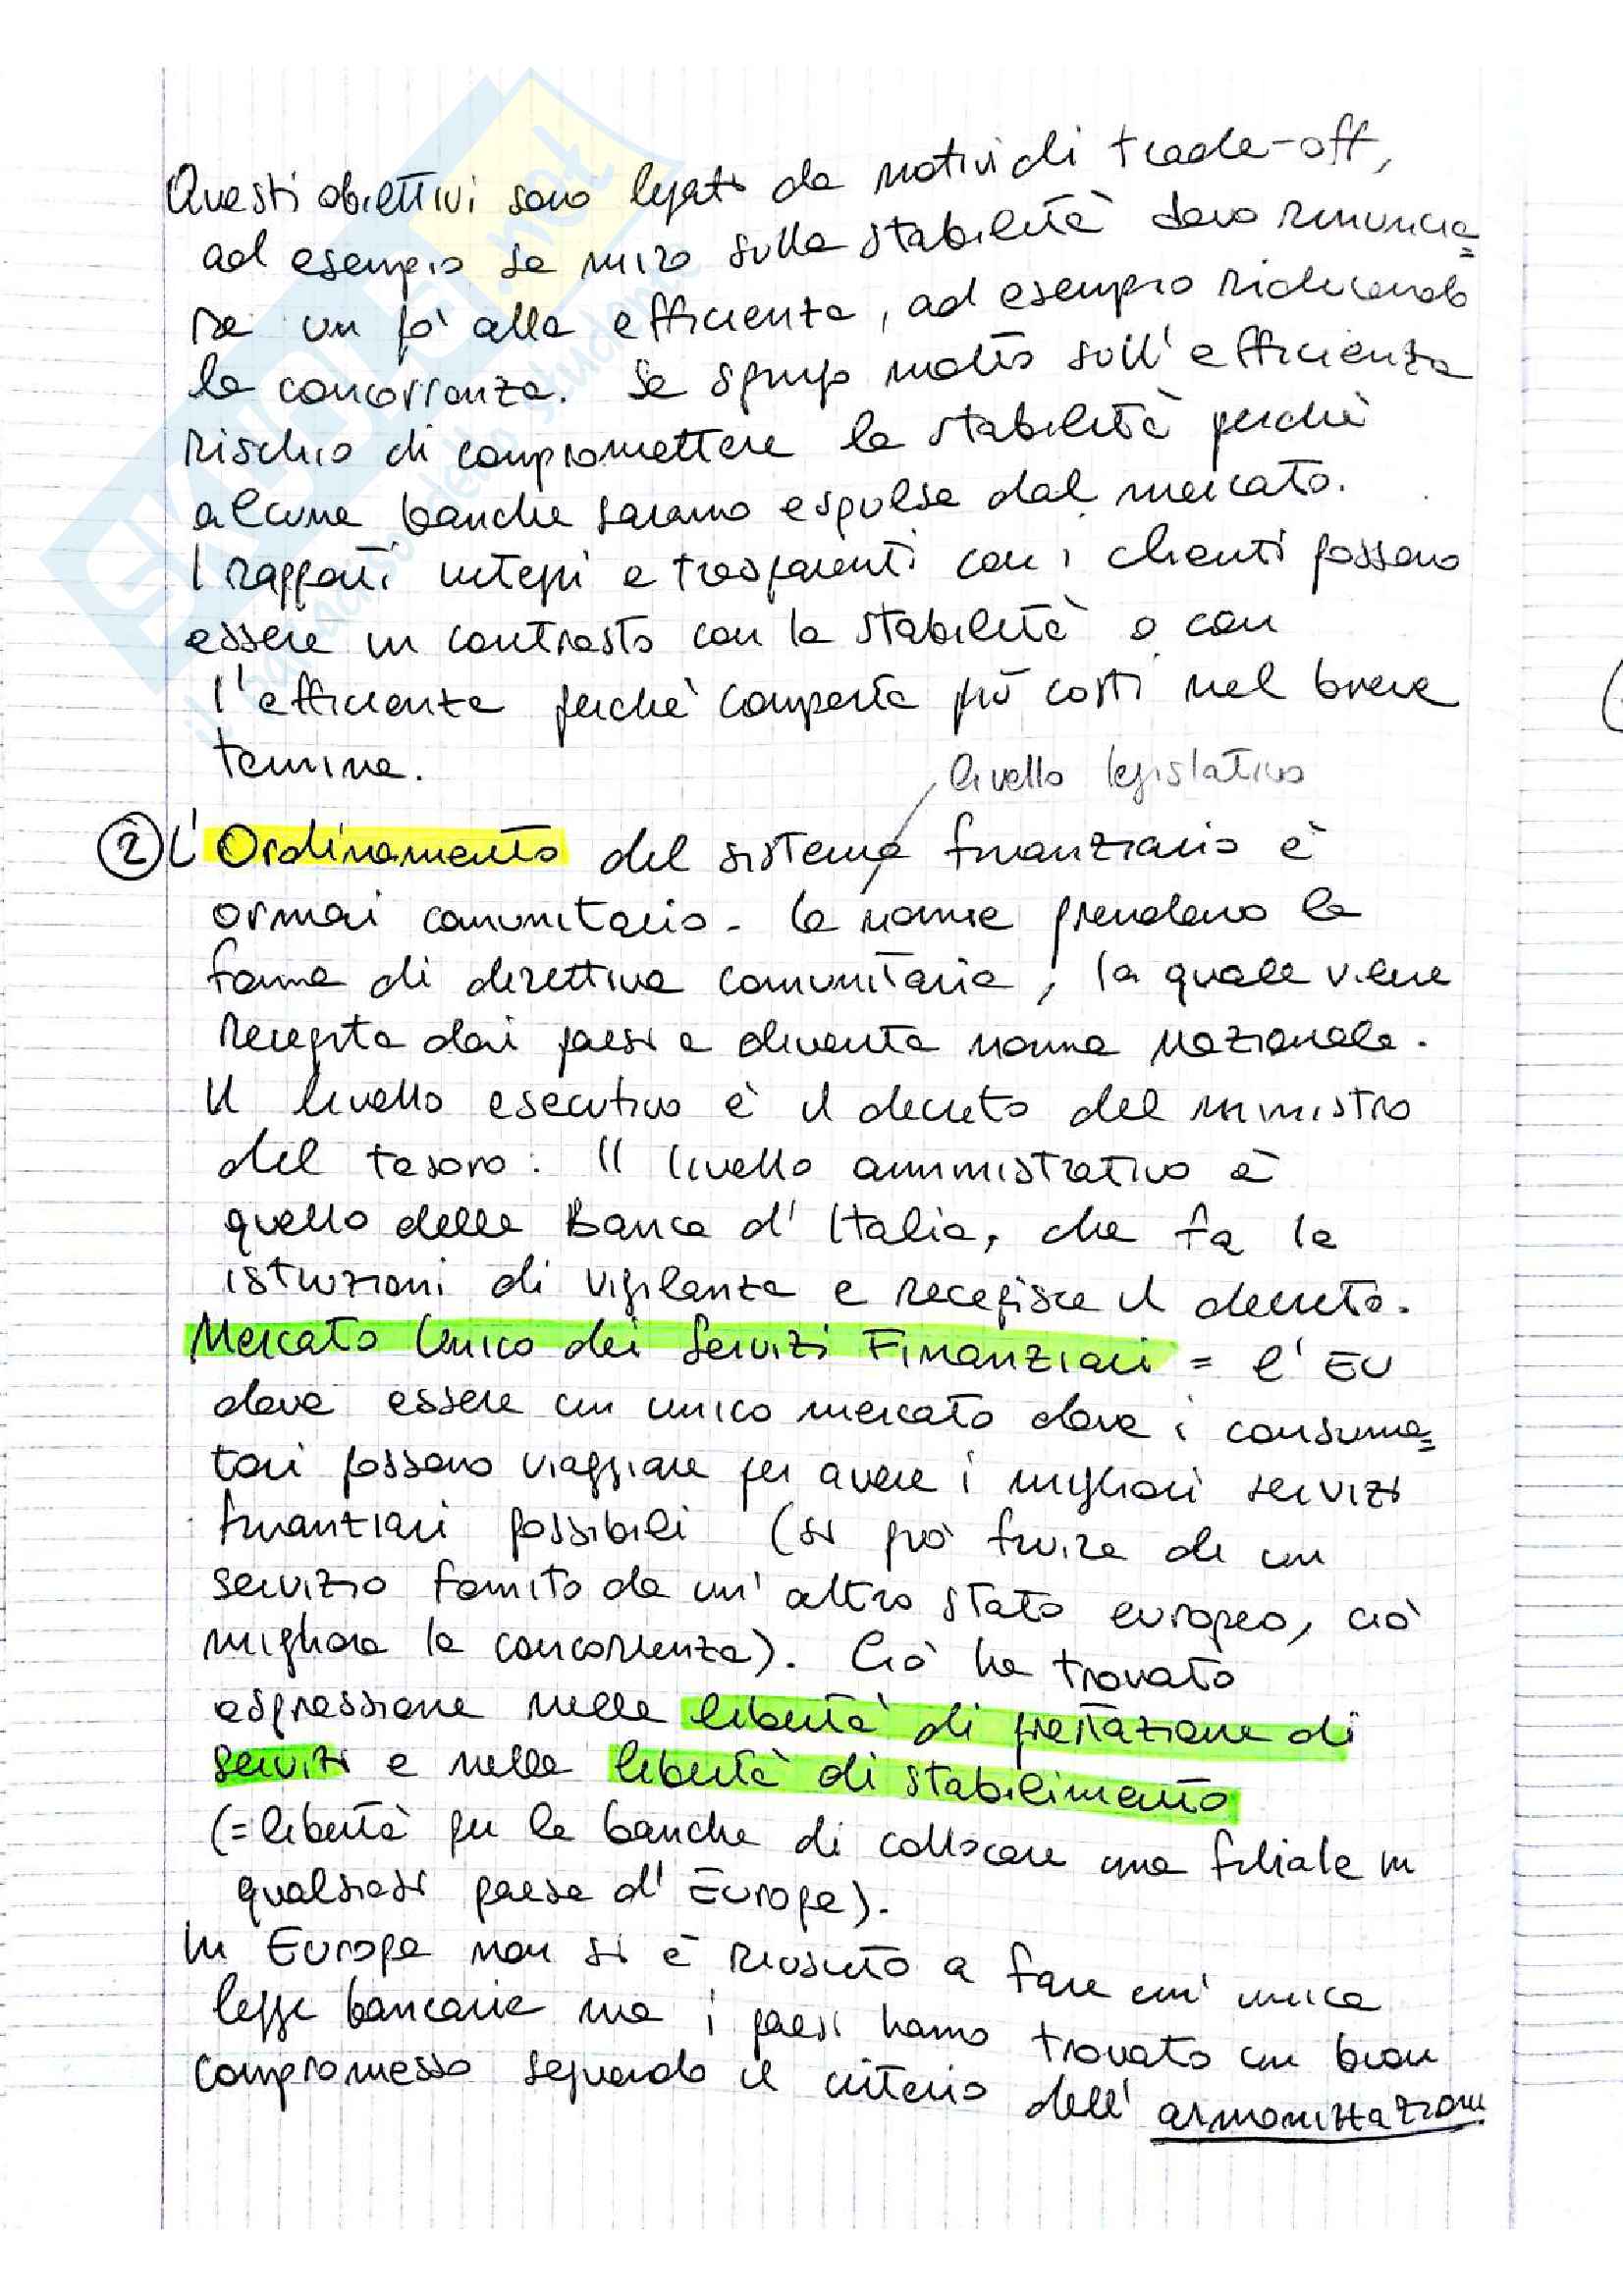 Questi obiettivi sono legati da motivi di trade-off,
ad esempio se miro sulla stabilità devo rinuncia=
re un pò alla efficienza, ad esempio riducendo
la concorrenza. Se spingo molto sull'efficienza
rischio di compromettere la stabilità perchè
alcune banche saranno espulse dal mercato.
I rapporti integri e trasparenti con i clienti possono
essere in contrasto con la stabilità o con
l'efficienza perchè comporta più costi nel breve
termine.
livello legislativo
② L'Ordinamento del sistema finanziario è
ormai comunitario. Le norme prendono la
forma di direttiva comunitaria, la quale viene
recepita dai paesi e diventa norma nazionale.
Il livello esecutivo è il decreto del ministro
del tesoro. Il livello amministrativo è
quello della Banca d'Italia, che fa le
istruzioni di vigilanza e recepisce il decreto.
Mercato Unico dei Servizi Finanziari = l'EU
deve essere un unico mercato dove i consuma=
tori possono viaggiare per avere i migliori servizi
finanziari possibili (si può fruire di un
servizio fornito da un'altro stato europeo, ciò
migliora la concorrenza). Ciò ha trovato
espressione nella libertà di prestazione di
servizi e nella libertà di stabilimento
(=libertà per le banche di collocare una filiale in
qualsiasi paese d'Europa).
In Europa non si è riusciti a fare un'unica
legge bancaria ma i paesi hanno trovato un buon
compromesso seguendo il criterio dell'armonizzazione